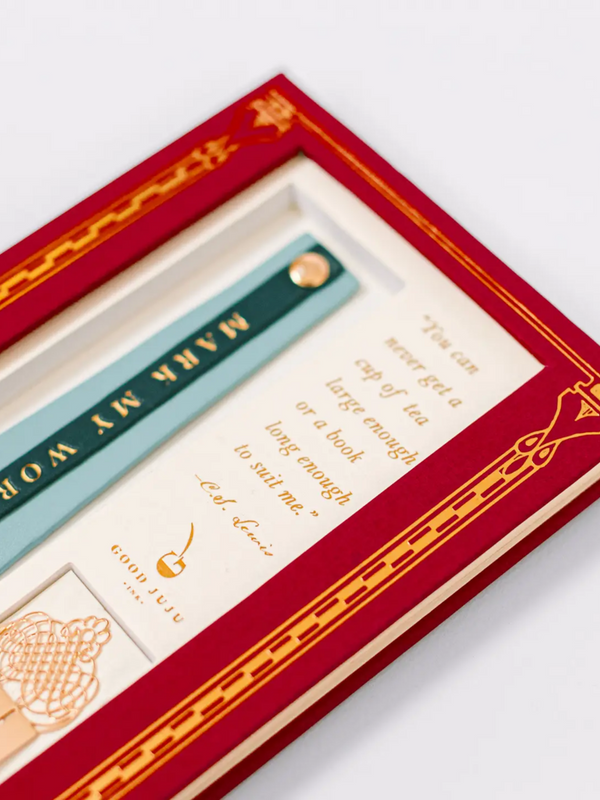 MARK MY WOR
"You can
never get a
cup of tea
large enough
or a book
long enough
to suit me."
C.S. Lewis
GOOD JUJU
·INK·